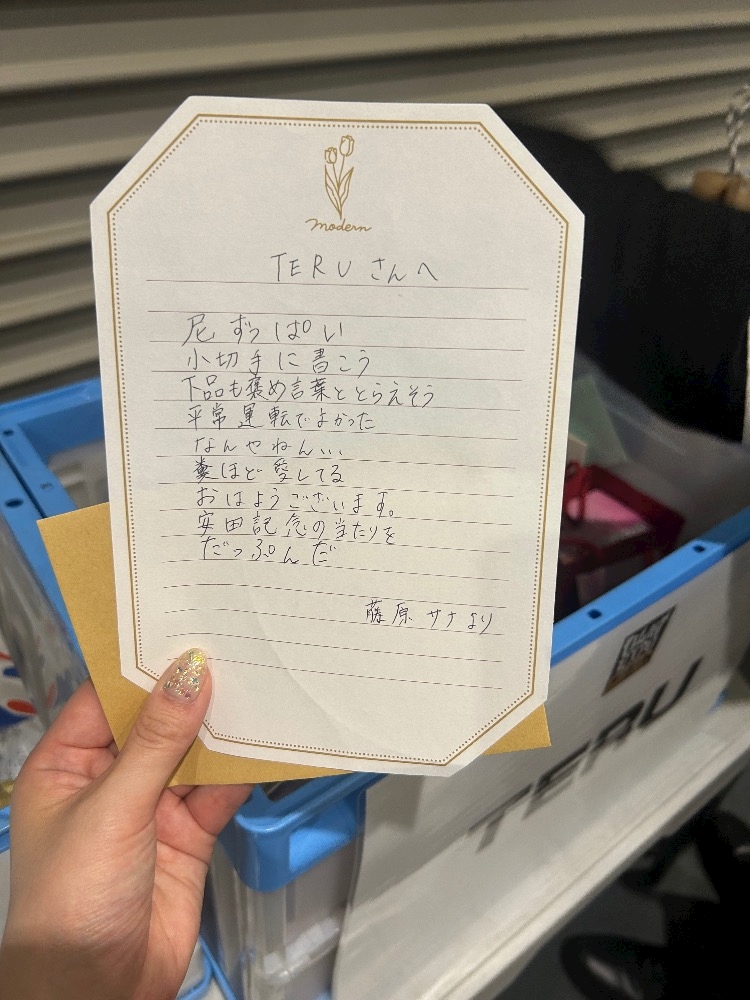 modern
TERUさんへ
尻すっぱい
小切手に書こう
下品も褒め言葉ととらえそう
平常運転でよかった
なんやねん...
糞ほど愛してる
おはようございます。
安田記念の当たりを
だっぷんだ
藤原サナより
TERU